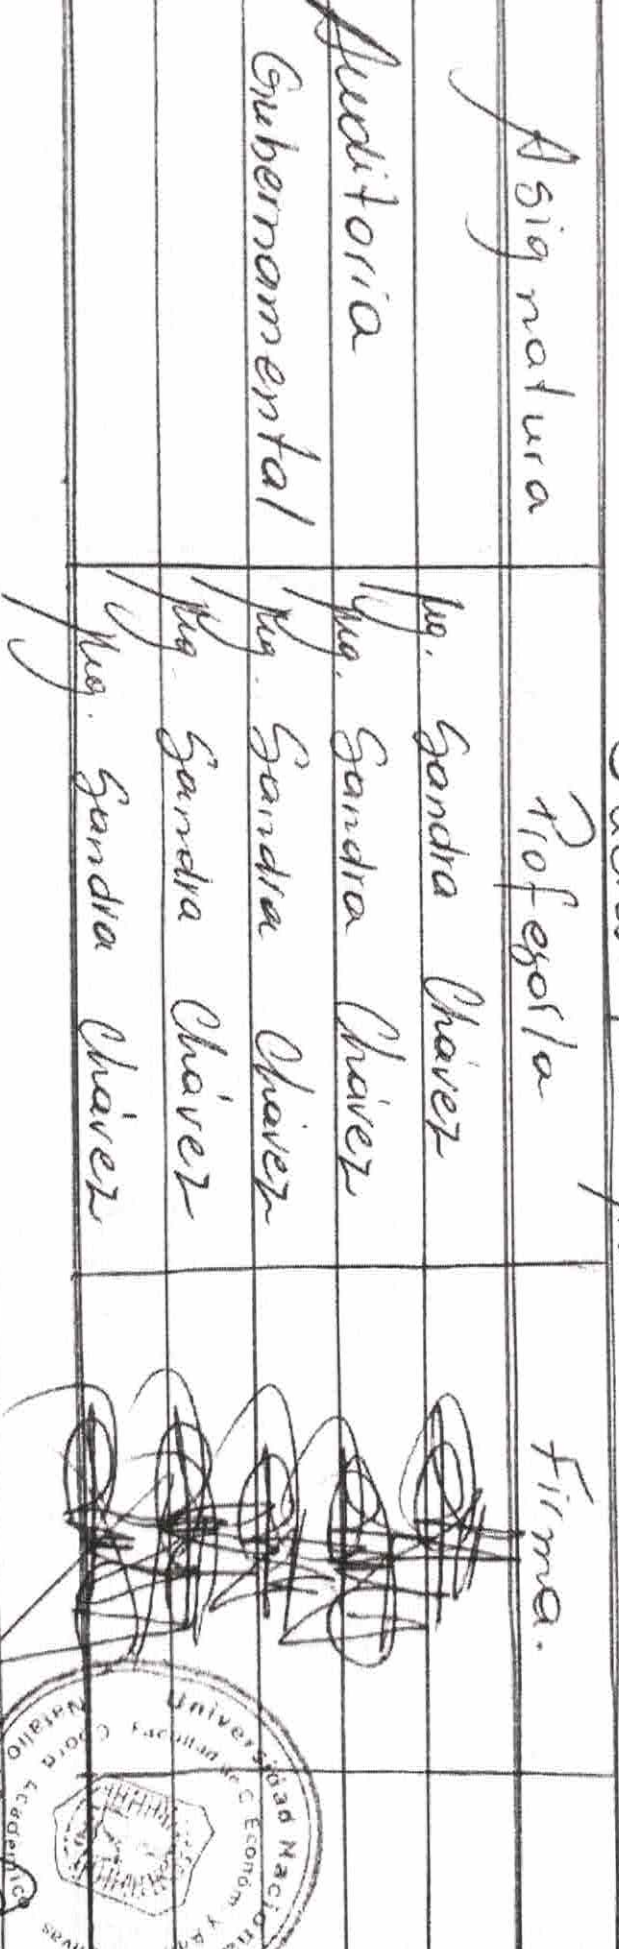 Asignatura Profesor/a Firma.
Mg. Sandra Chávez
Auditoría Mg. Sandra Chávez
Gubernamental Mg. Sandra Chávez
Mg. Sandra Chávez
Mg. Sandra Chávez
Universidad Nacional
Facultad de C. Económ y
Coord Academico
Natalio